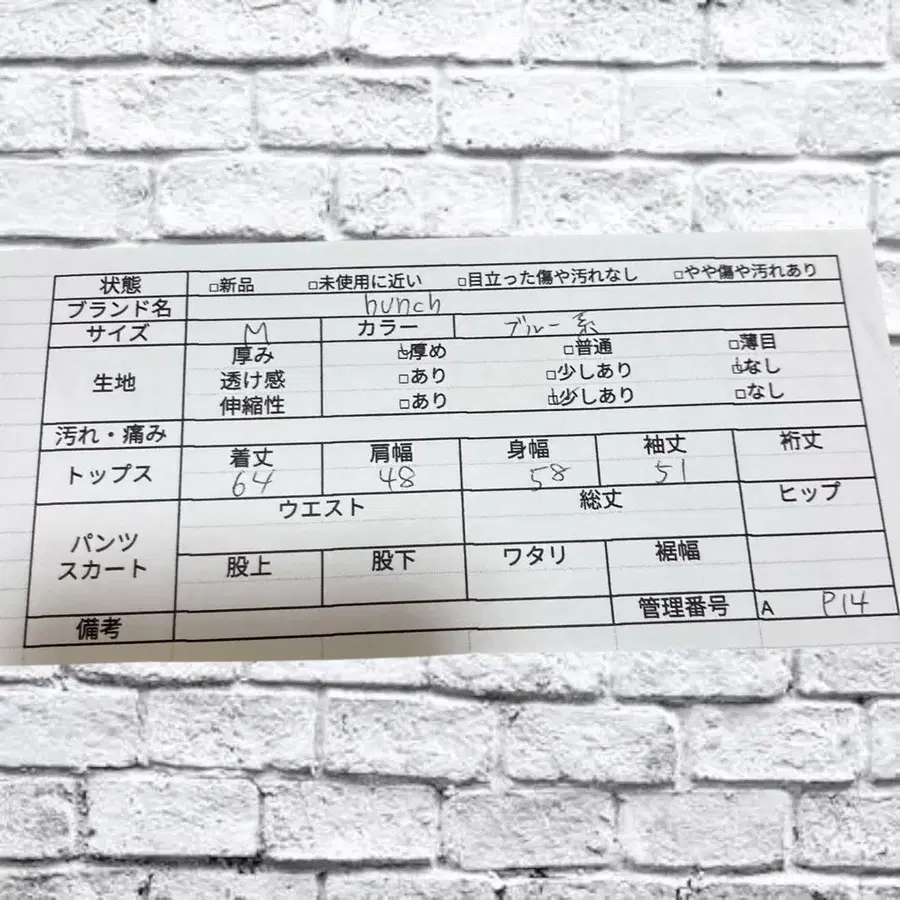 状態 □新品 □未使用に近い □目立った傷や汚れなし □やや傷や汚れあり
ブランド名 hunch
サイズ M カラー ブルー系
生地 厚み ☑厚め □普通 □薄目
透け感 □あり □少しあり ☑なし
伸縮性 □あり ☑少しあり □なし
汚れ・痛み
トップス 着丈 肩幅 身幅 袖丈 裄丈
64 48 58 51
パンツ スカート ウエスト 総丈 ヒップ
股上 股下 ワタリ 裾幅
備考 管理番号 A P14